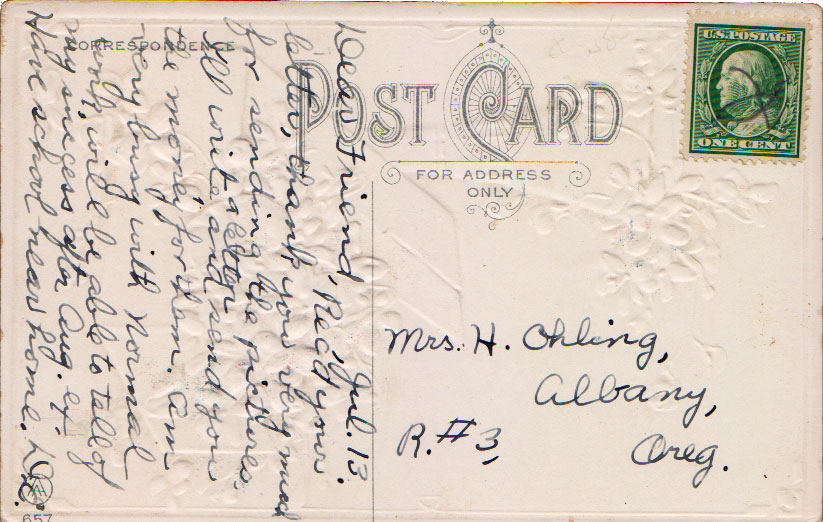 CORRESPONDENCE
POST CARD
FOR ADDRESS
ONLY
U.S. POSTAGE
ONE CENT
Jul. 13.
Dear Friend, Rec'd your
letter, thank you very much
for sending the pictures,
I'll write a letter and send you
the money for them. Am
very busy with Normal
work, will be able to tell of
my success after Aug. ex.
Have school near home.
Mrs. H. Ohling,
Albany,
R. #3, Oreg.
657